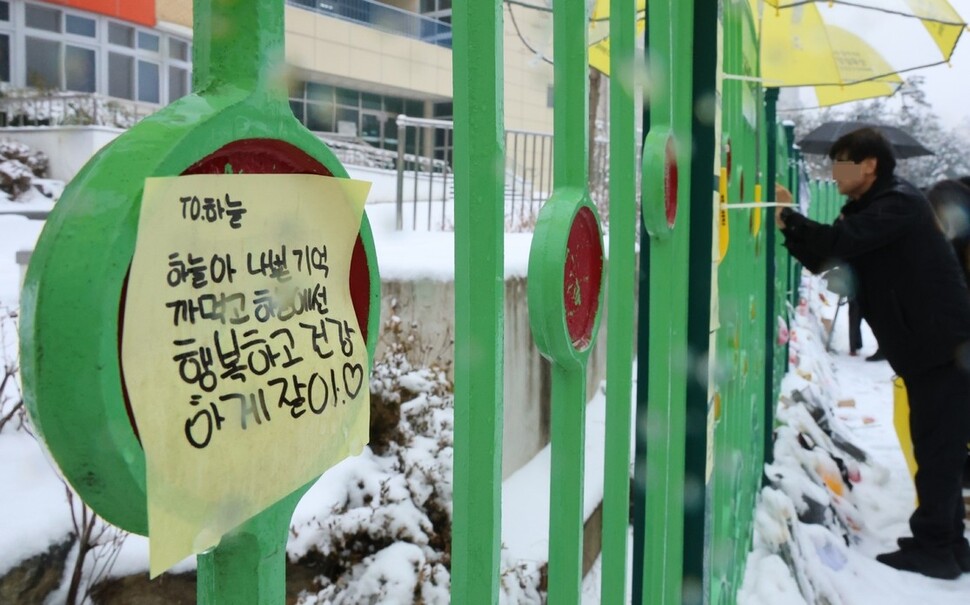 TO.하늘
하늘아 나쁜 기억
까먹고 하늘에선
행복하고 건강
하게 살아.♡